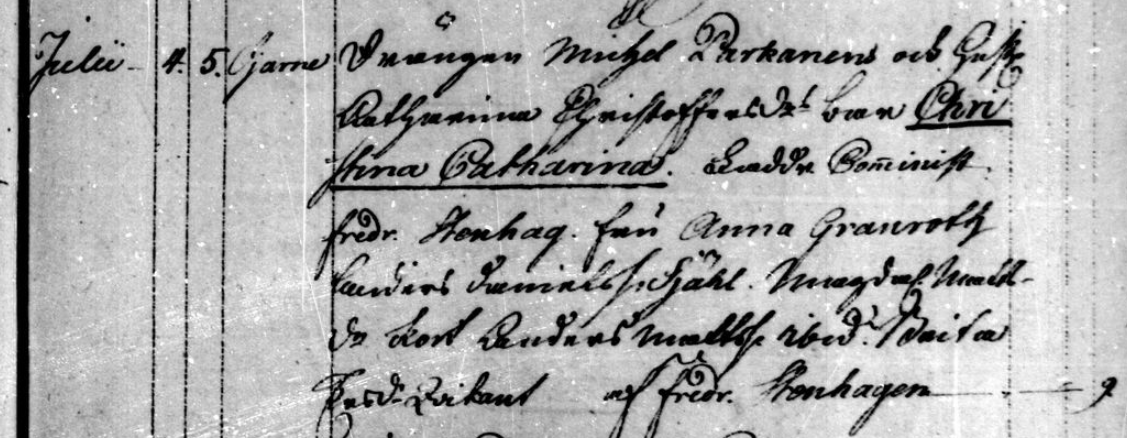 Julii 4. 5. Garne Drängen Michel Parkanens och Hust.
Catharina Christoffersdr barn Chri
stina Catharina. Fadd. Com̅inist
fredr. Stenhag. fru Anna Granroth
Anders Daniels Sjähl. Magdal. Matts
dr Kort Anders Mattss. ibid. Brita
af fredr. Stenhagen 9